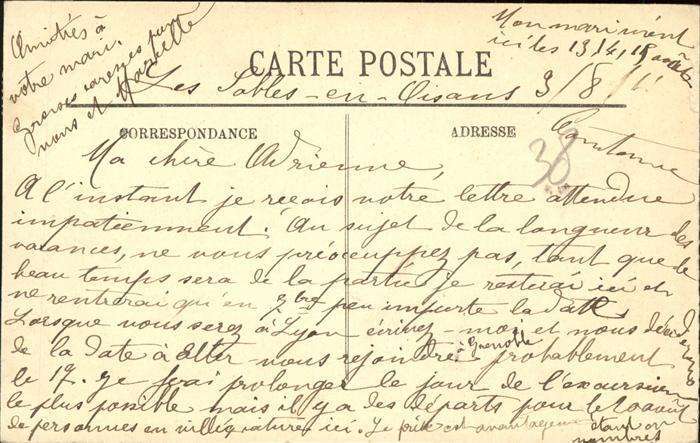 Amitiés à
votre mari.
Grosses caresses pour
vous et
Mon mari vient
ici les 13, 14, 15 août
CARTE POSTALE
Les Sables-en-Oisans 3/8/11
CORRESPONDANCE
ADRESSE
38
Ma chère Adrienne,
A l'instant je reçois votre lettre attendue
impatiemment. Au sujet de la longueur des
vacances, ne vous préoccuppez pas, tant que le
beau temps sera de la partie je resterai ici et
ne rentrerai qu'en 7bre peu importe la date
Lorsque vous serez à Lyon écrivez-moi et nous
de la date à nous rejoindre à Grenoble probablement
le 17. Je ferai prolonger le jour de l'excursion
le plus possible mais il y a des départs pour le
de personnes en villégiature ici. Le prix est avantageux étant en
nombres